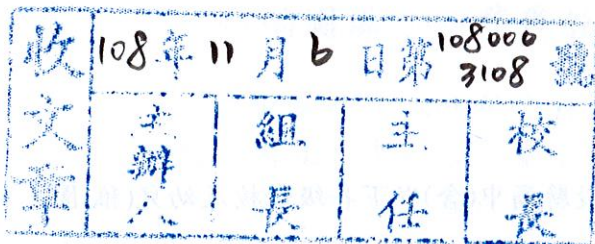 收文章
108年11月6日第1080003108號
主辦人
組長
主任
校長